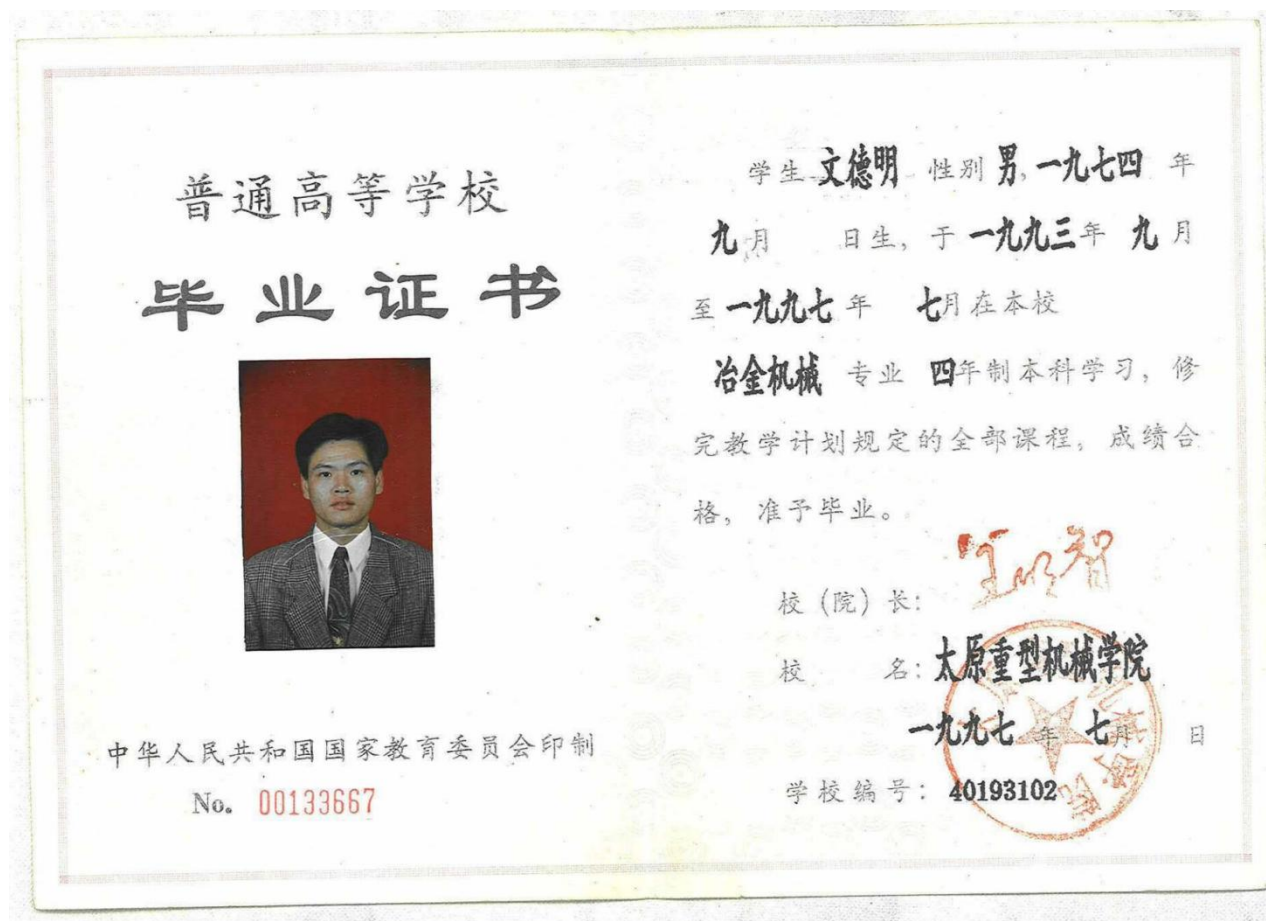 普通高等学校
毕业证书
中华人民共和国国家教育委员会印制
No. 00133667
学生 文德明 性别 男, 一九七四 年
九月 日生, 于 一九九三年 九月
至 一九九七 年 七月在本校
冶金机械 专业 四年制本科学习, 修
完教学计划规定的全部课程, 成绩合
格, 准予毕业。
校（院）长:
校 名: 太原重型机械学院
一九九七 年 七月 日
学校编号: 40193102